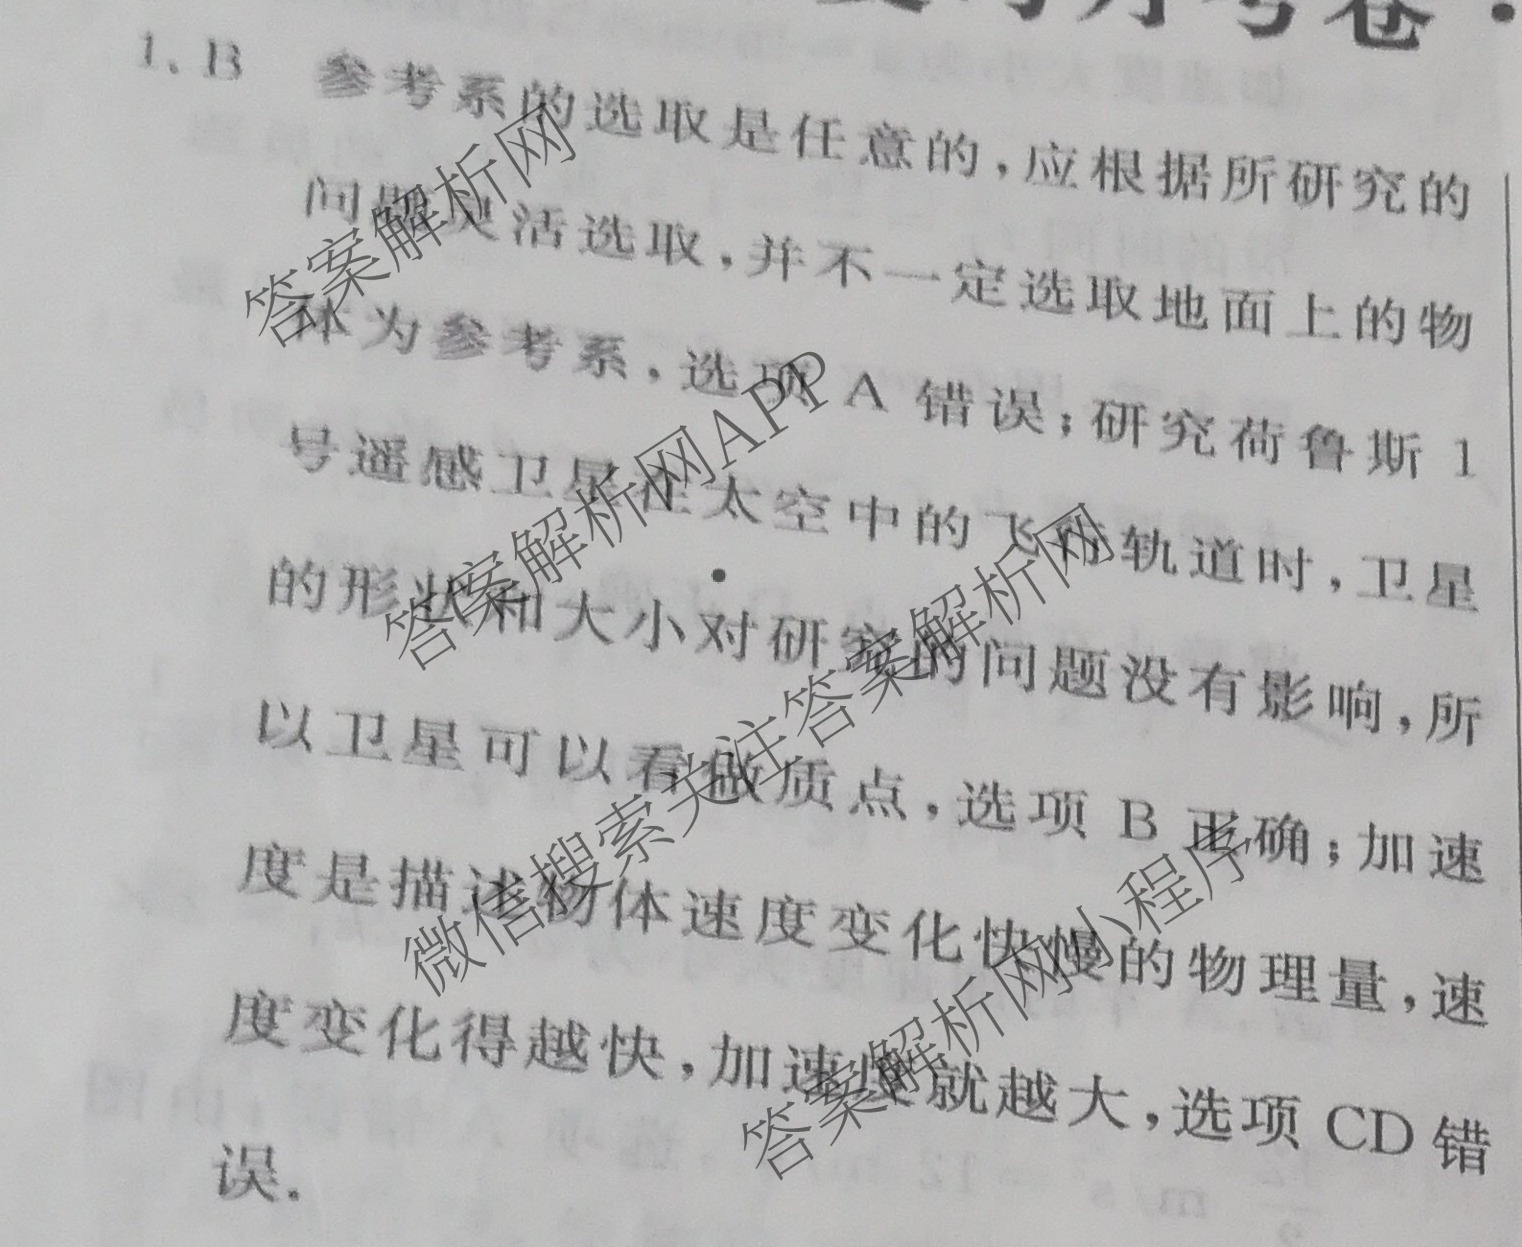 月考卷·
1、B 参考系的选取是任意的,应根据所研究的
问题灵活选取,并不一定选取地面上的物
体为参考系,选项 A 错误;研究荷鲁斯 1
号遥感卫星在太空中的飞行轨道时,卫星
的形状和大小对研究的问题没有影响,所
以卫星可以看做质点,选项 B 正确;加速
度是描述物体速度变化快慢的物理量,速
度变化得越快,加速度就越大,选项 CD 错
误.
答案解析网
答案解析网APP
微信搜索关注答案解析网
答案解析网小程序